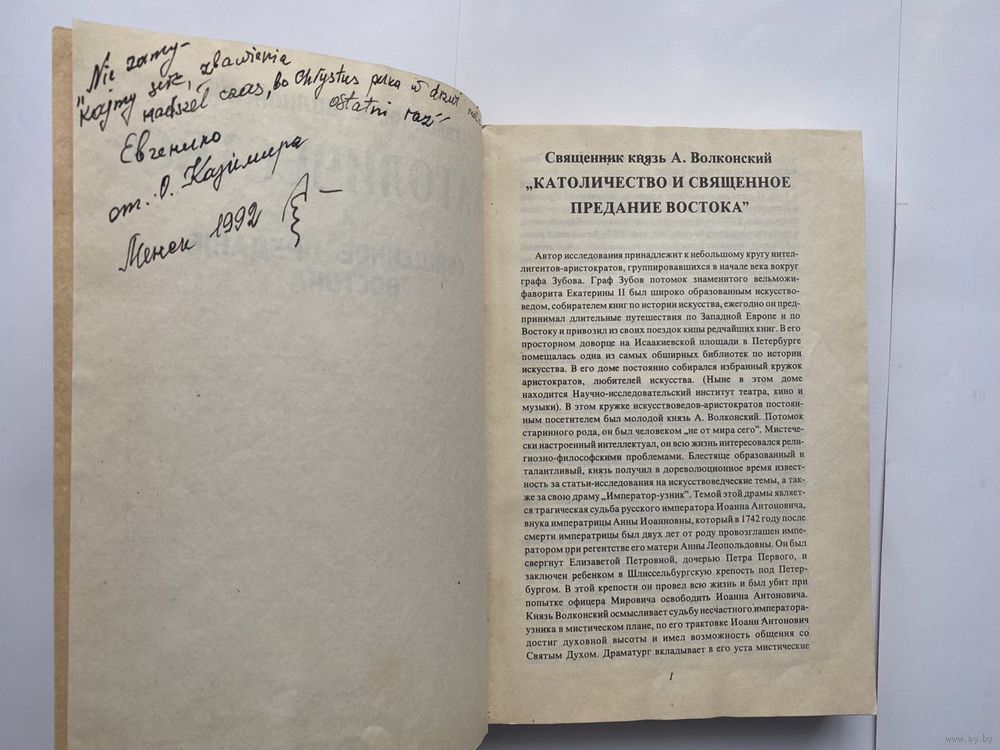 „Nie zamy-
kajmy serc, zbawienia
nadszedł czas, bo Chrystus puka w drzwi
ostatni raz"
Евгению
от. О. Казимира
Менск 1992
Священник князь А. Волконский
„КАТОЛИЧЕСТВО И СВЯЩЕННОЕ
ПРЕДАНИЕ ВОСТОКА”
Автор исследования принадлежит к небольшому кругу интел-
лигентов-аристократов, группировавшихся в начале века вокруг
графа Зубова. Граф Зубов потомок знаменитого вельможи-
фаворита Екатерины II был широко образованным искусство-
ведом, собирателем книг по истории искусства, ежегодно он пред-
принимал длительные путешествия по Западной Европе и по
Востоку и привозил из своих поездок кипы редчайших книг. В его
просторном доворце на Исаакиевской площади в Петербурге
помещалась одна из самых обширных библиотек по истории
искусства. В его доме постоянно собирался избранный кружок
аристократов, любителей искусства. (Ныне в этом доме
находится Научно-исследовательский институт театра, кино и
музыки). В этом кружке искусствоведов-аристократов постоян-
ным посетителем был молодой князь А. Волконский. Потомок
старинного рода, он был человеком „не от мира сего”. Мистече-
ски настроенный интеллектуал, он всю жизнь интересовался рели-
гиозно-философскими проблемами. Блестяще образованный и
талантливый, князь получил в дореволюционное время извест-
ность за статьи-исследования на искусствоведческие темы, а так-
же за свою драму „Император-узник”. Темой этой драмы являет-
ся трагическая судьба русского императора Иоанна Антоновича,
внука императрицы Анны Иоанновны, который в 1742 году после
смерти императрицы был двух лет от роду провозглашен импе-
ратором при регентстве его матери Анны Леопольдовны. Он был
свергнут Елизаветой Петровной, дочерью Петра Первого, и
заключен ребенком в Шлиссельбургскую крепость под Петер-
бургом. В этой крепости он провел всю жизнь и был убит при
попытке офицера Мировича освободить Иоанна Антоновича.
Князь Волконский осмысливает судьбу несчастного императора-
узника в мистическом плане, по его трактовке Иоанн Антонович
достиг духовной высоты и имел возможность общения со
Святым Духом. Драматург вкладывает в его уста мистические
I
www.ay.by